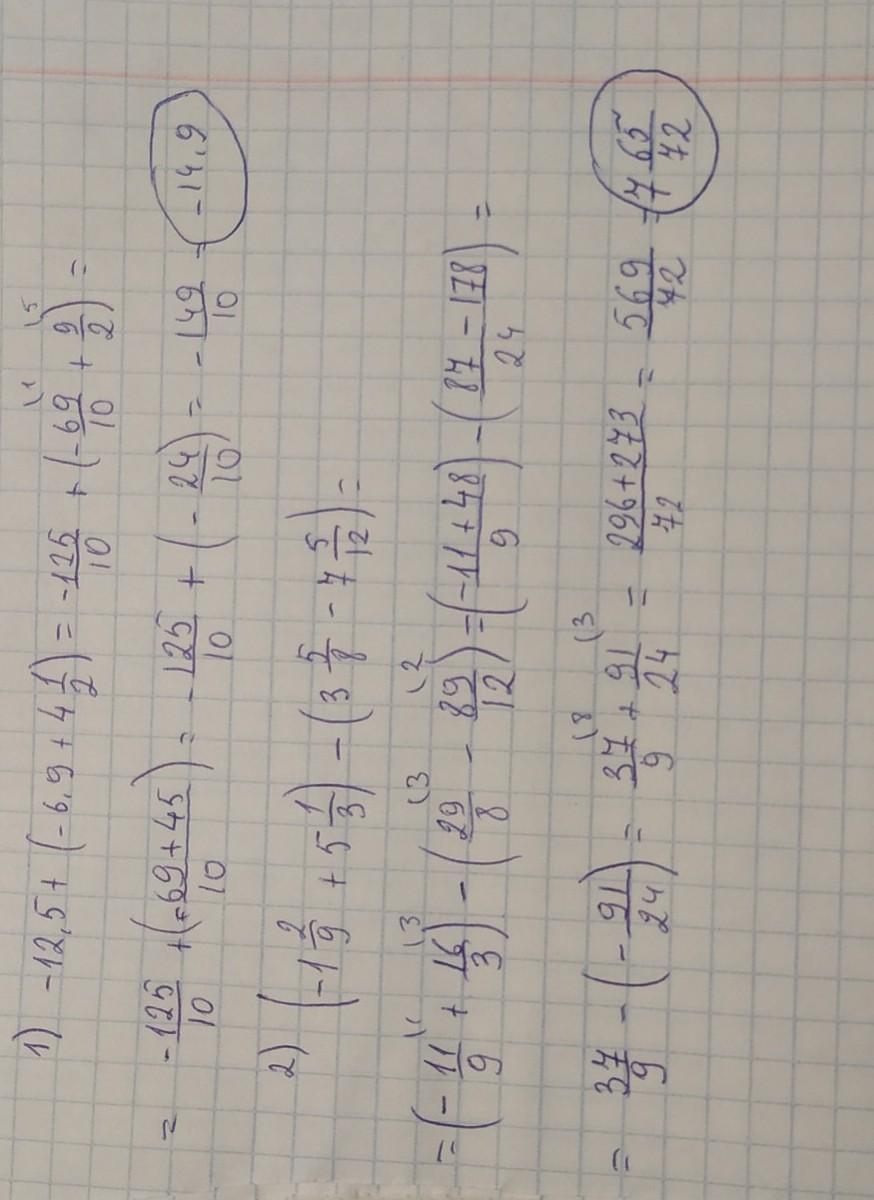 1) -12,5 + (-6,9 + 4 1/2) = -125/10 + (-69/10 (1 + 9/2 (5) =
= -125/10 + (-69+45/10) = -125/10 + (-24/10) = -149/10 = -14,9
2) (-1 2/9 + 5 1/3) - (3 5/8 - 7 5/12) =
= (-11/9 (1 + 16/3 (3) - (29/8 (3 - 89/12 (2) = (-11+48/9) - (87-178/24) =
= 37/9 - (-91/24) = 37/9 (8 + 91/24 (3 = 296+273/72 = 569/72 = 7 65/72